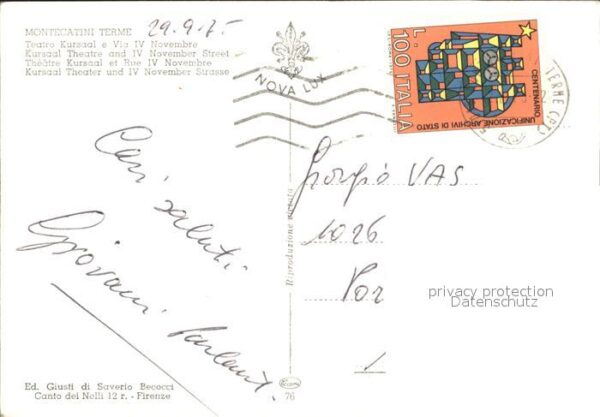 MONTECATINI TERME
29.9.75
Teatro Kursaal e Via IV Novembre
Kursaal Theatre and IV November Street
Théâtre Kursaal et Rue IV Novembre
Kursaal Theater und IV November Strasse
NOVA LUX
L. 100 ITALIA
CENTENARIO
UNIFICAZIONE ARCHIVI DI STATO
TERME (PT)
Cari saluti
Giovanni
Giorgio VAS
1026
1
privacy protection
Datenschutz
Riproduzione vietata
Ed. Giusti di Saverio Becocci
Canto dei Nelli 12 r. - Firenze
76